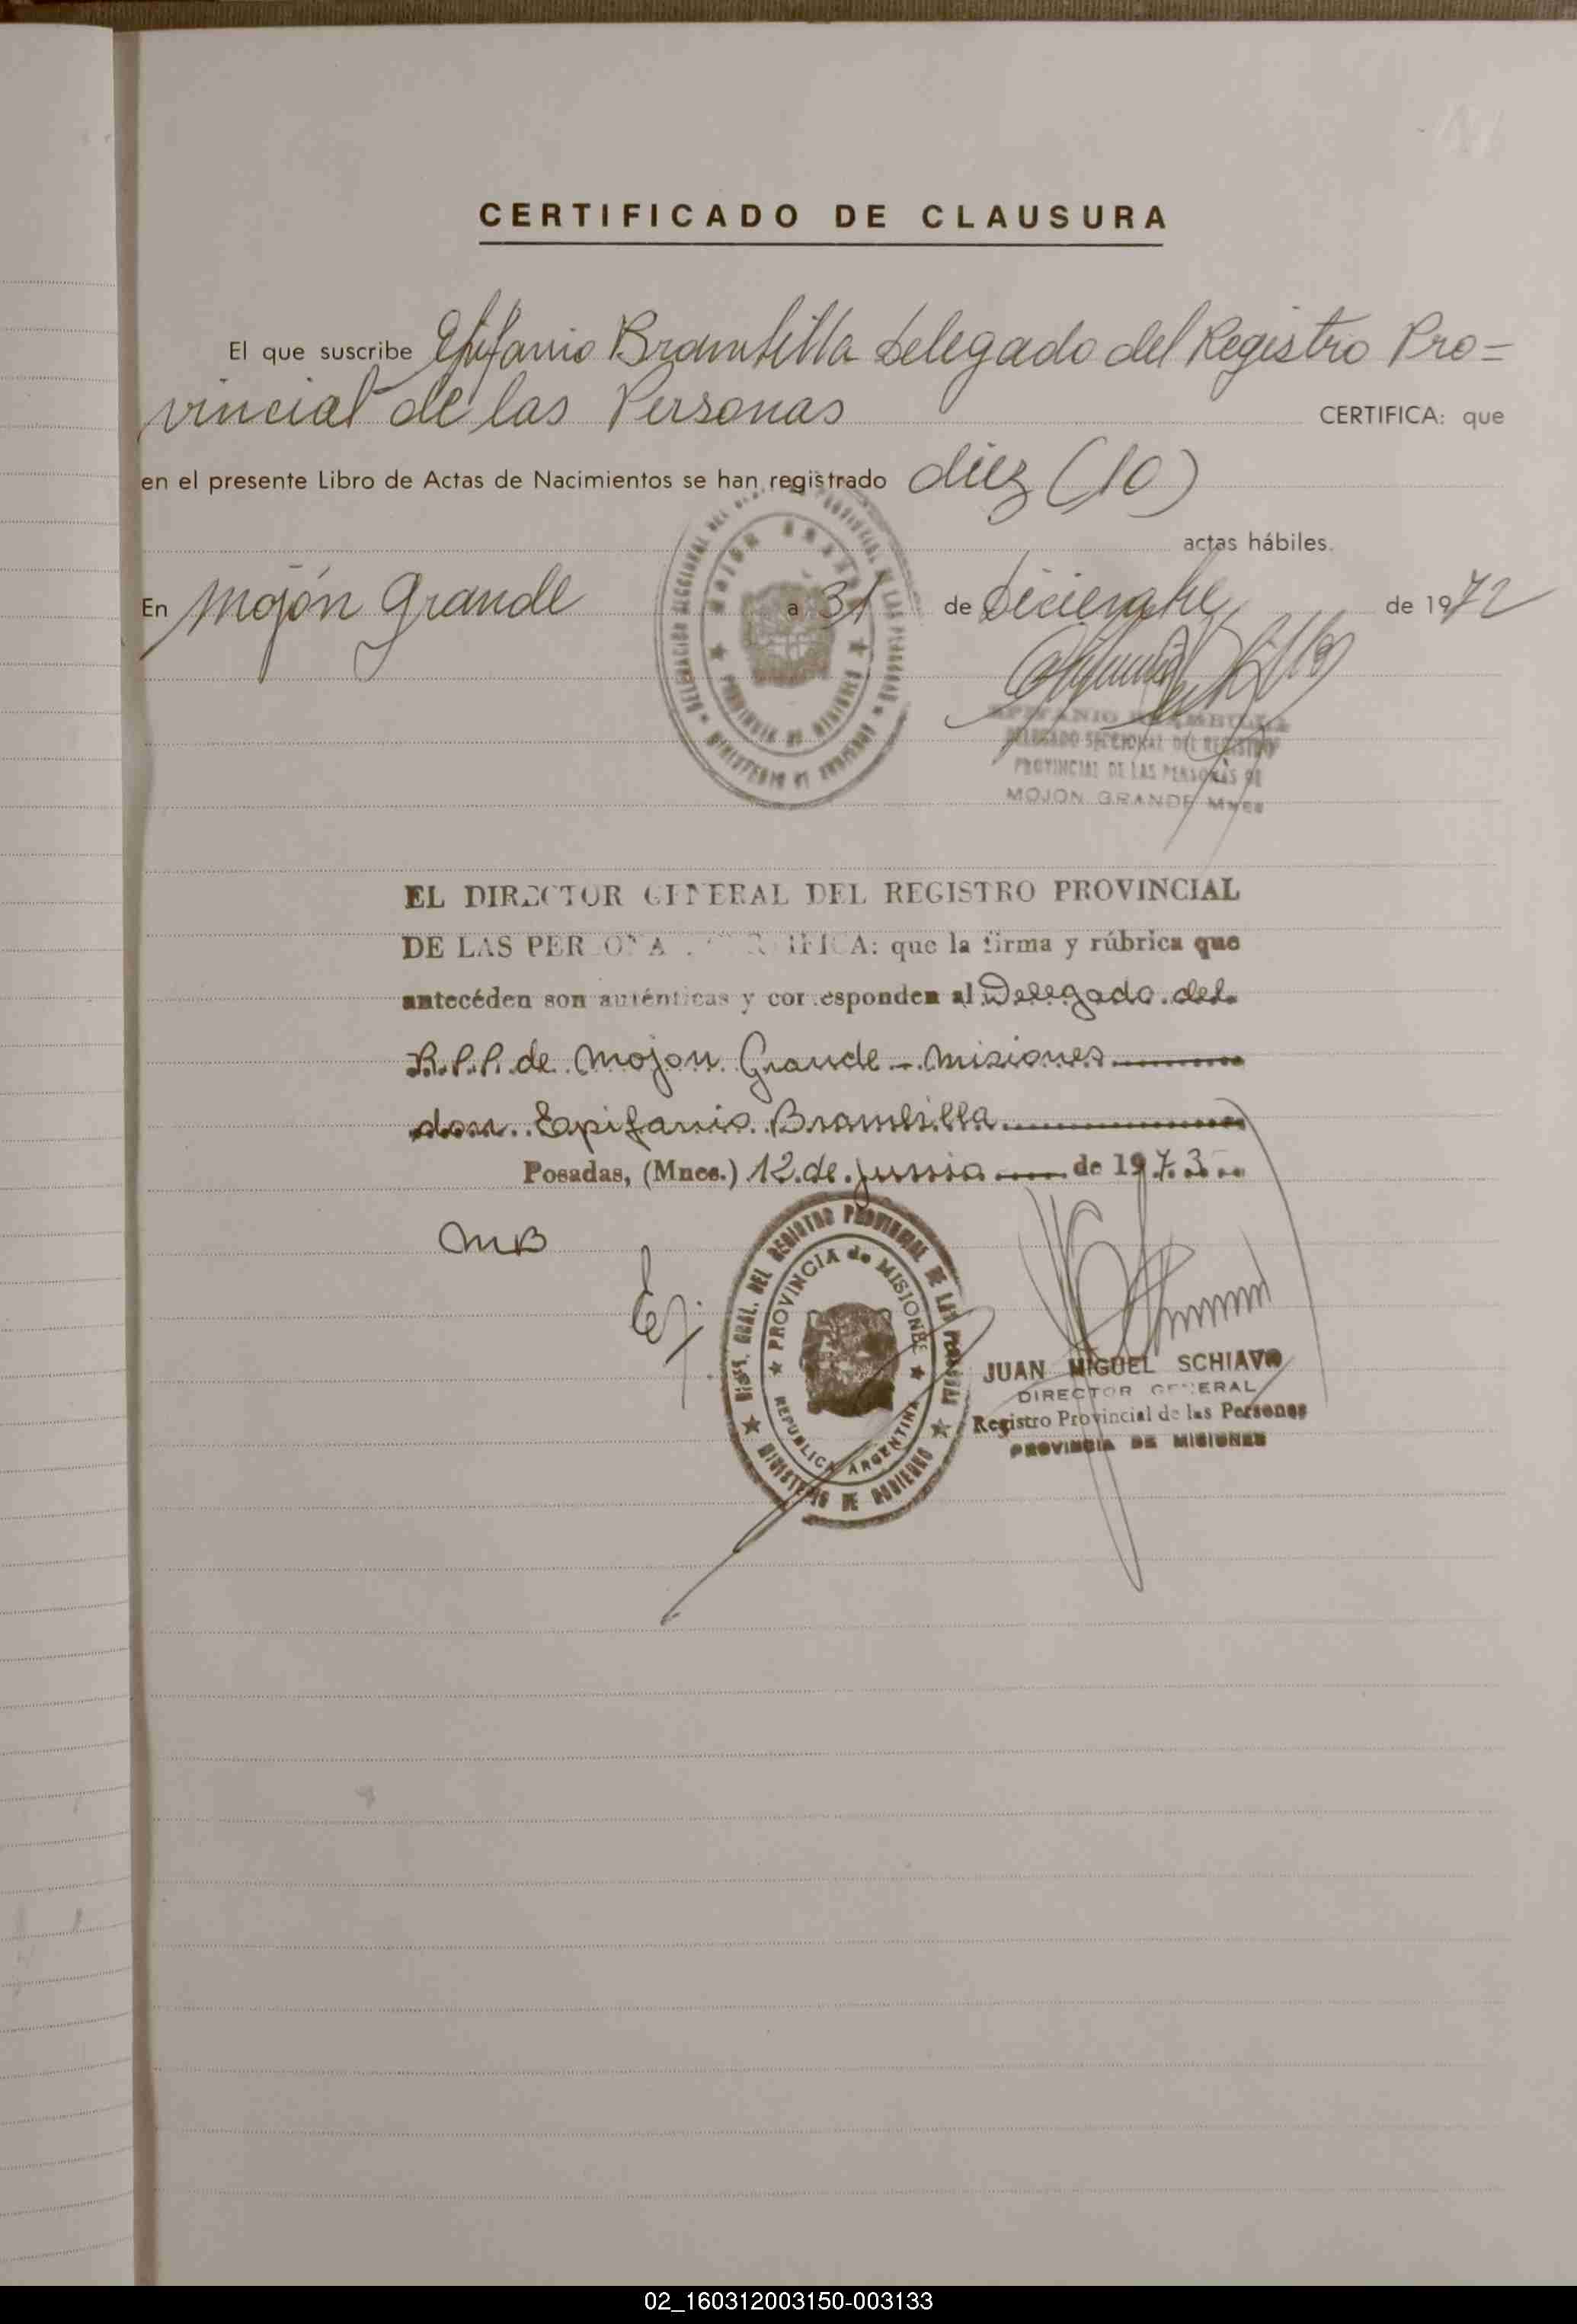 CERTIFICADO DE CLAUSURA
El que suscribe Epifanio Brambilla Delegado del Registro Pro=
vincial de las Personas CERTIFICA: que
en el presente Libro de Actas de Nacimientos se han registrado diez (10)
actas hábiles.
En Mojón Grande a 31 de Diciembre de 1972
EPIFANIO BRAMBILLA
DELEGADO SECCIONAL DEL REGISTRO
PROVINCIAL DE LAS PERSONAS DE
MOJON GRANDE Mnes
EL DIRECTOR GENERAL DEL REGISTRO PROVINCIAL
DE LAS PERSONAS CERTIFICA: que la firma y rúbrica que
antecéden son auténticas y corresponden al Delegado del
R.P.P. de Mojon Grande - Misiones
don Epifanio Brambilla
Posadas, (Mnes.) 12 de junio de 1973
MB
DIRC. GRAL. DEL REGISTRO PROVINCIAL DE LAS PERSONAS
PROVINCIA de MISIONES
REPUBLICA ARGENTINA
MINISTERIO DE GOBIERNO
JUAN MIGUEL SCHIAVO
DIRECTOR GENERAL
Registro Provincial de las Personas
PROVINCIA DE MISIONES
02_160312003150-003133